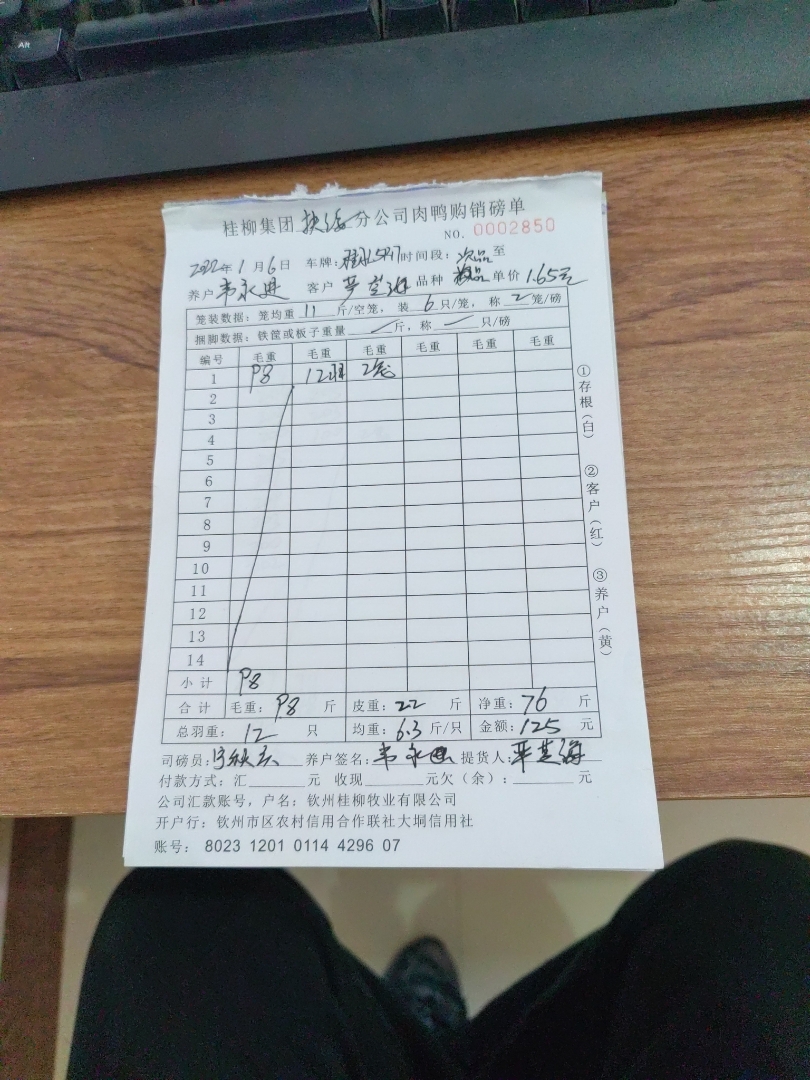 Alt
桂柳集团 分公司肉鸭购销磅单
NO. 0002850
2022年1月6日 车牌: 时间段:次品至
养户韦永进 客户 品种 单价1.65元
笼装数据:笼均重 11 斤/空笼,装 6 只/笼,称 2 笼/磅
捆脚数据:铁筐或板子重量 / 斤,称 / 只/磅
编号 毛重 毛重 毛重 毛重 毛重 毛重
1 98 12羽 2笼
2
3
4
5
6
7
8
9
10
11
12
13
14
小计 98
合计 毛重:98 斤 皮重:22 斤 净重:76 斤
总羽重:12 只 均重:6.3 斤/只 金额:125 元
司磅员: 养户签名:韦永进 提货人:
付款方式:汇 元 收现 元欠(余): 元
公司汇款账号,户名:钦州桂柳牧业有限公司
开户行:钦州市区农村信用合作联社大垌信用社
账号: 8023 1201 0114 4296 07
①存根(白)
②客户(红)
③养户(黄)